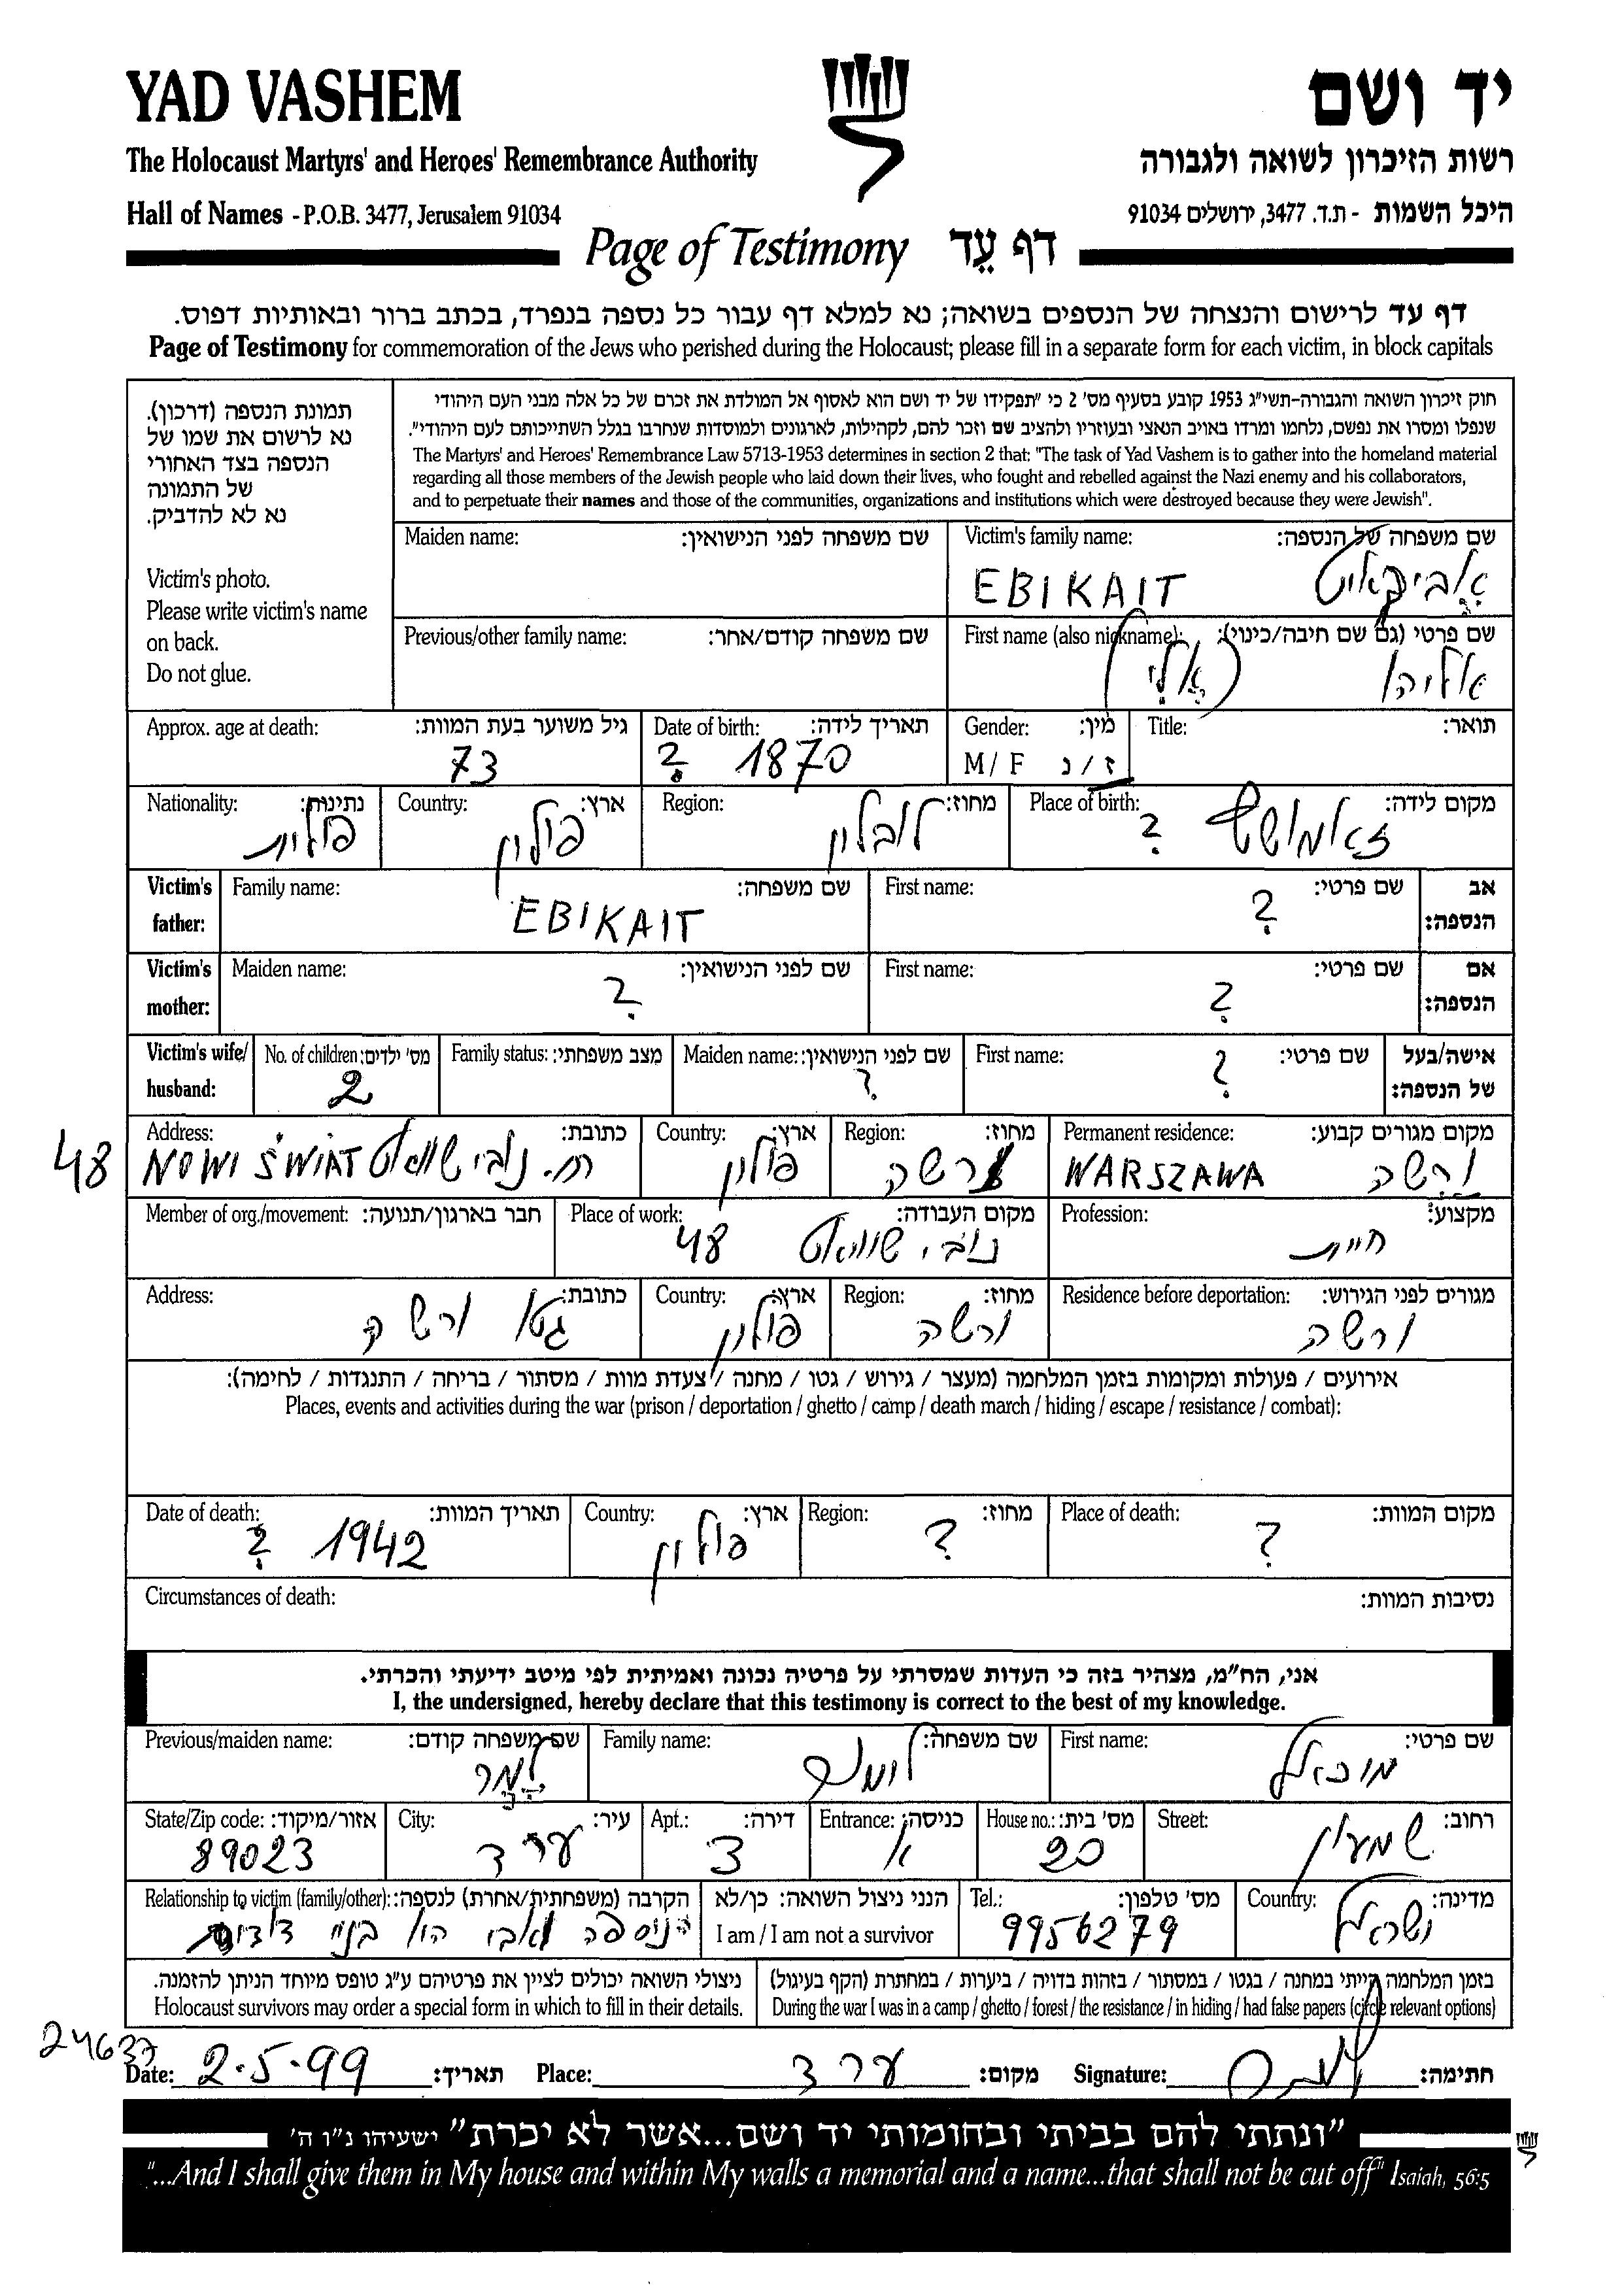 YAD VASHEM
יד ושם
The Holocaust Martyrs' and Heroes' Remembrance Authority
רשות הזיכרון לשואה ולגבורה
Hall of Names - P.O.B. 3477, Jerusalem 91034
היכל השמות - ת.ד. 3477, ירושלים 91034
Page of Testimony דף עֵד
דף עד לרישום והנצחה של הנספים בשואה; נא למלא דף עבור כל נספה בנפרד, בכתב ברור ובאותיות דפוס.
Page of Testimony for commemoration of the Jews who perished during the Holocaust; please fill in a separate form for each victim, in block capitals
תמונת הנספה (דרכון).
נא לרשום את שמו של
הנספה בצד האחורי
של התמונה
נא לא להדביק.
Victim's photo.
Please write victim's name
on back.
Do not glue.
חוק זיכרון השואה והגבורה-תשי"ג 1953 קובע בסעיף מס' 2 כי "תפקידו של יד ושם הוא לאסוף אל המולדת את זכרם של כל אלה מבני העם היהודי
שנפלו ומסרו את נפשם, נלחמו ומרדו באויב הנאצי ובעוזריו ולהציב שם וזכר להם, לקהילות, לארגונים ולמוסדות שנחרבו בגלל השתייכותם לעם היהודי".
The Martyrs' and Heroes' Remembrance Law 5713-1953 determines in section 2 that: "The task of Yad Vashem is to gather into the homeland material
regarding all those members of the Jewish people who laid down their lives, who fought and rebelled against the Nazi enemy and his collaborators,
and to perpetuate their names and those of the communities, organizations and institutions which were destroyed because they were Jewish".
Victim's family name: שם משפחה של הנספה:
EBIKAIT אביקאיט
Maiden name: שם משפחה לפני הנישואין:
First name (also nickname): שם פרטי (גם שם חיבה/כינוי):
אליהו (אלי)
Previous/other family name: שם משפחה קודם/אחר:
Title: תואר:
Gender: מין:
M / F ז / נ
Date of birth: תאריך לידה:
1870 ?
Approx. age at death: גיל משוער בעת המוות:
73
Place of birth: מקום לידה:
זאמושץ ?
Region: מחוז:
לובלין
Country: ארץ:
פולין
Nationality: נתינות:
פולנית
Victim's father: אב הנספה:
First name: שם פרטי:
?
Family name: שם משפחה:
EBIKAIT
Victim's mother: אם הנספה:
First name: שם פרטי:
?
Maiden name: שם לפני הנישואין:
?
Victim's wife/ husband: אישה/בעל של הנספה:
First name: שם פרטי:
?
Maiden name: שם לפני הנישואין:
?
Family status: מצב משפחתי:
No. of children: מס' ילדים:
2
Permanent residence: מקום מגורים קבוע:
WARSZAWA ורשה
Region: מחוז:
ורשה
Country: ארץ:
פולין
Address: כתובת:
רח. נובי שוויאט NOWI ŚWIAT 48
Profession: מקצוע:
חייט
Place of work: מקום העבודה:
נובי שוויאט 48
Member of org./movement: חבר בארגון/תנועה:
Residence before deportation: מגורים לפני הגירוש:
ורשה
Region: מחוז:
ורשה
Country: ארץ:
פולין
Address: כתובת:
גטו ורשה
אירועים / פעולות ומקומות בזמן המלחמה (מעצר / גירוש / גטו / מחנה / צעדת מוות / מסתור / בריחה / התנגדות / לחימה):
Places, events and activities during the war (prison / deportation / ghetto / camp / death march / hiding / escape / resistance / combat):
Place of death: מקום המוות:
?
Region: מחוז:
?
Country: ארץ:
פולין
Date of death: תאריך המוות:
1942 ?
Circumstances of death: נסיבות המוות:
אני, הח"מ, מצהיר בזה כי העדות שמסרתי על פרטיה נכונה ואמיתית לפי מיטב ידיעתי והכרתי.
I, the undersigned, hereby declare that this testimony is correct to the best of my knowledge.
First name: שם פרטי:
מיכאל
Family name: שם משפחה:
Previous/maiden name: שם משפחה קודם:
Street: רחוב:
שמעון
House no.: מס' בית:
20
Entrance: כניסה:
א
Apt.: דירה:
3
City: עיר:
ערד
State/Zip code: אזור/מיקוד:
89023
Country: מדינה:
ישראל
Tel.: מס' טלפון:
9956279
הנני ניצול השואה: כן/לא
I am / I am not a survivor
Relationship to victim (family/other): הקרבה (משפחתית/אחרת) לנספה:
הניספה ואבי היו בני דודים
בזמן המלחמה הייתי במחנה / בגטו / במסתור / בזהות בדויה / ביערות / במחתרת (הקף בעיגול)
During the war I was in a camp / ghetto / forest / the resistance / in hiding / had false papers (circle relevant options)
ניצולי השואה יכולים לציין את פרטיהם ע"ג טופס מיוחד הניתן להזמנה.
Holocaust survivors may order a special form in which to fill in their details.
24637
Date: 2.5.99 תאריך: Place: ערד מקום: Signature: חתימה:
"ונתתי להם בביתי ובחומותי יד ושם...אשר לא יכרת" ישעיהו נ"ו ה'
"...And I shall give them in My house and within My walls a memorial and a name...that shall not be cut off" Isaiah, 56:5